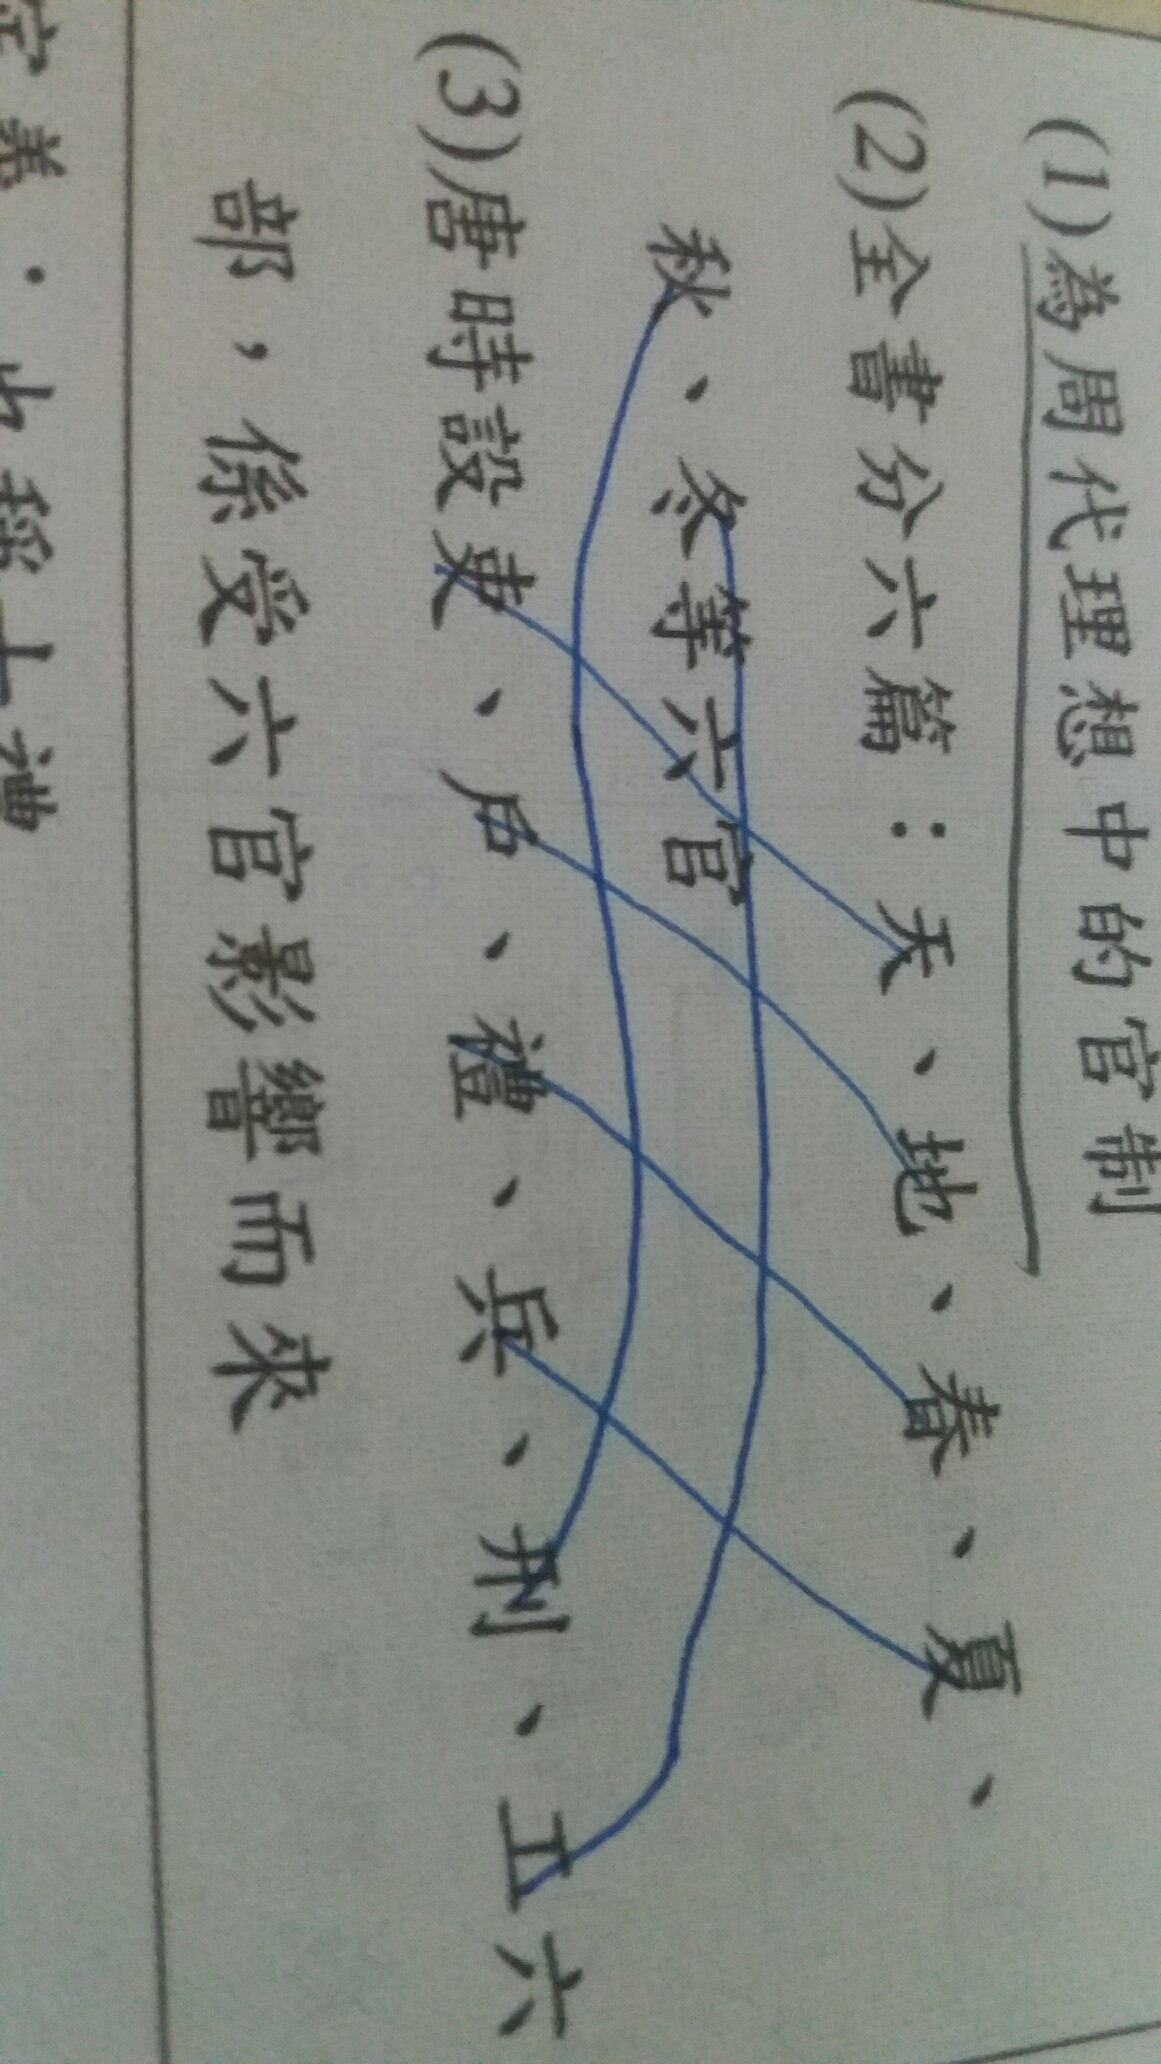 (1)為周代理想中的官制
(2)全書分六篇：天、地、春、夏、
秋、冬等六官
(3)唐時設吏、戶、禮、兵、刑、工六
部，係受六官影響而來